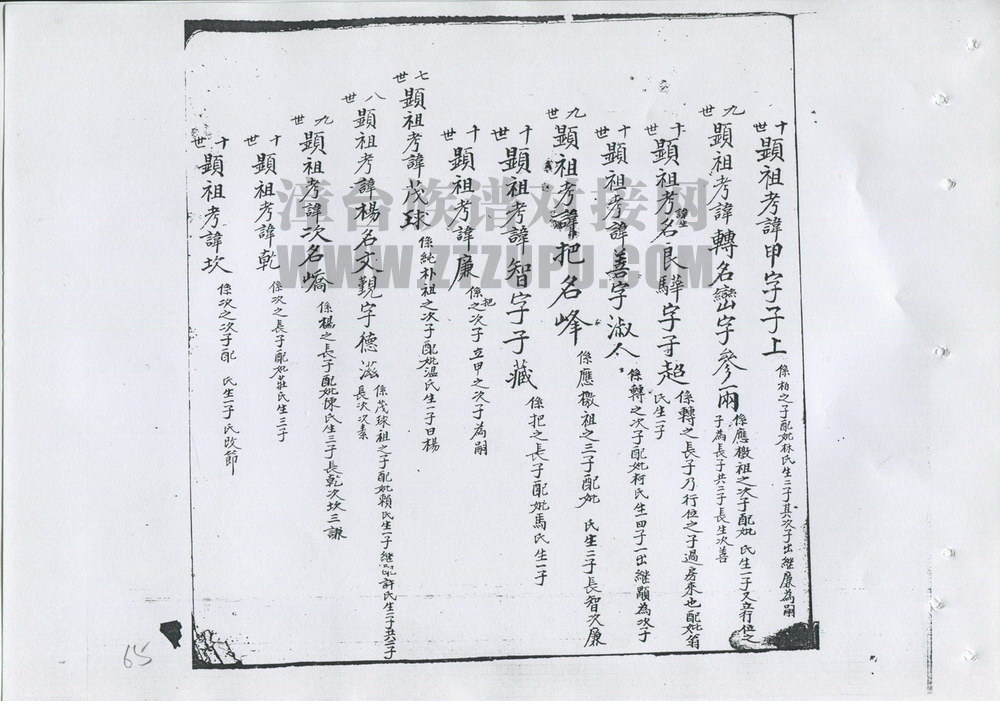 十世 顯祖考諱甲字子上 係柏之子配妣林氏生二子其次子出継廉為嗣
九世 顯祖考諱轉名巒字參兩 係應檄祖之次子配妣 氏生一子又立行位之子為長子共二子長生次善
十世 顯祖考諱生名良驊字子超 係轉之長子乃行位之子過房來也配妣翁氏生二子
十世 顯祖考諱善字淑人 係轉之次子配妣柯氏生四子一出継顯為次子
九世 顯祖考諱把名峰 係應檄祖之三子配妣 氏生二子長智次廉
十世 顯祖考諱智字子藏 係把之長子配妣馬氏生一子
十世 顯祖考諱廉 係把之次子立甲之次子為嗣
七世 顯祖考諱茂球 係純朴祖之次子配妣温氏生一子曰楊
八世 顯祖考諱楊名文觀字德滋 係茂球祖之子配妣賴氏生一子継配許氏生二子共三子長次次素
九世 顯祖考諱次名嶠 係楊之長子配妣陳氏生三子長乾次坎三謙
十世 顯祖考諱乾 係次之長子配妣莊氏生三子
十世 顯祖考諱坎 係次之次子配 氏生一子氏改節
漳台族谱对接网
WWW.ZTZUPU.COM
65